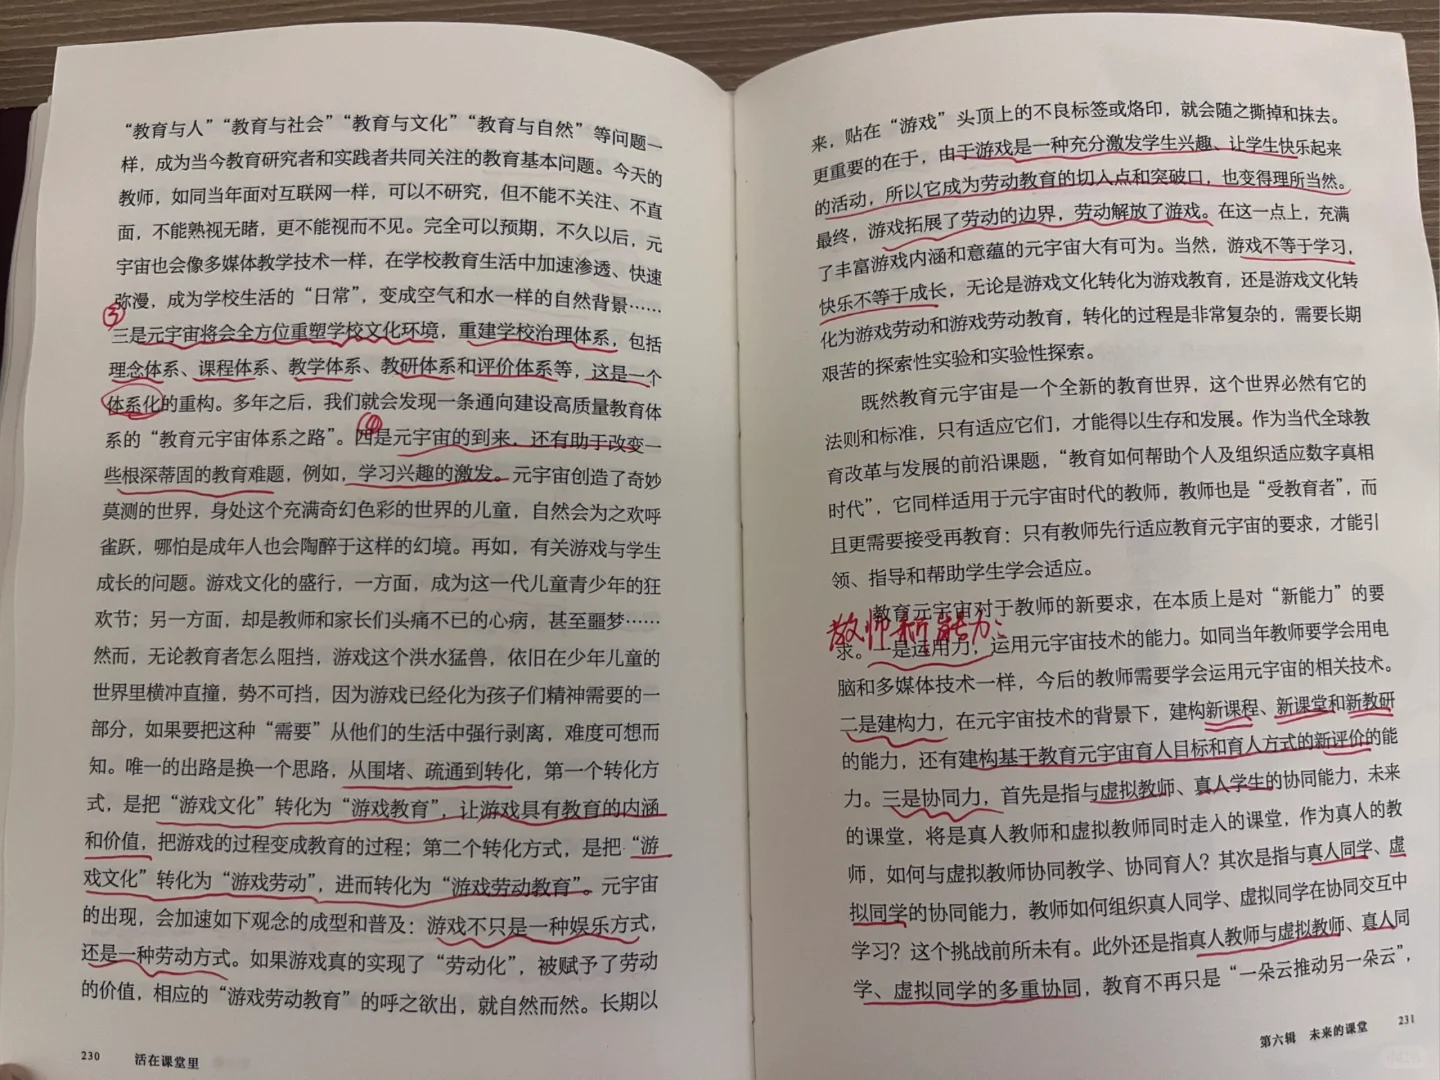 “教育与人”“教育与社会”“教育与文化”“教育与自然”等问题一
样，成为当今教育研究者和实践者共同关注的教育基本问题。今天的
教师，如同当年面对互联网一样，可以不研究，但不能不关注、不直
面，不能熟视无睹，更不能视而不见。完全可以预期，不久以后，元
宇宙也会像多媒体教学技术一样，在学校教育生活中加速渗透、快速
弥漫，成为学校生活的“日常”，变成空气和水一样的自然背景……
③
三是元宇宙将会全方位重塑学校文化环境，重建学校治理体系，包括
理念体系、课程体系、教学体系、教研体系和评价体系等，这是一个
体系化的重构。多年之后，我们就会发现一条通向建设高质量教育体
系的“教育元宇宙体系之路”。四是元宇宙的到来，还有助于改变一
些根深蒂固的教育难题，例如，学习兴趣的激发。元宇宙创造了奇妙
莫测的世界，身处这个充满奇幻色彩的世界的儿童，自然会为之欢呼
雀跃，哪怕是成年人也会陶醉于这样的幻境。再如，有关游戏与学生
成长的问题。游戏文化的盛行，一方面，成为这一代儿童青少年的狂
欢节；另一方面，却是教师和家长们头痛不已的心病，甚至噩梦……
然而，无论教育者怎么阻挡，游戏这个洪水猛兽，依旧在少年儿童的
世界里横冲直撞，势不可挡，因为游戏已经化为孩子们精神需要的一
部分，如果要把这种“需要”从他们的生活中强行剥离，难度可想而
知。唯一的出路是换一个思路，从围堵、疏通到转化，第一个转化方
式，是把“游戏文化”转化为“游戏教育”，让游戏具有教育的内涵
和价值，把游戏的过程变成教育的过程；第二个转化方式，是把“游
戏文化”转化为“游戏劳动”，进而转化为“游戏劳动教育”。元宇宙
的出现，会加速如下观念的成型和普及：游戏不只是一种娱乐方式，
还是一种劳动方式。如果游戏真的实现了“劳动化”，被赋予了劳动
的价值，相应的“游戏劳动教育”的呼之欲出，就自然而然。长期以
230 活在课堂里
来，贴在“游戏”头顶上的不良标签或烙印，就会随之撕掉和抹去。
更重要的在于，由于游戏是一种充分激发学生兴趣、让学生快乐起来
的活动，所以它成为劳动教育的切入点和突破口，也变得理所当然。
最终，游戏拓展了劳动的边界，劳动解放了游戏。在这一点上，充满
了丰富游戏内涵和意蕴的元宇宙大有可为。当然，游戏不等于学习，
快乐不等于成长，无论是游戏文化转化为游戏教育，还是游戏文化转
化为游戏劳动和游戏劳动教育，转化的过程是非常复杂的，需要长期
艰苦的探索性实验和实验性探索。
既然教育元宇宙是一个全新的教育世界，这个世界必然有它的
法则和标准，只有适应它们，才能得以生存和发展。作为当代全球教
育改革与发展的前沿课题，“教育如何帮助个人及组织适应数字真相
时代”，它同样适用于元宇宙时代的教师，教师也是“受教育者”，而
且更需要接受再教育：只有教师先行适应教育元宇宙的要求，才能引
领、指导和帮助学生学会适应。
教育元宇宙对于教师的新要求，在本质上是对“新能力”的要
教师新能力：
求。一是运用力，运用元宇宙技术的能力。如同当年教师要学会用电
脑和多媒体技术一样，今后的教师需要学会运用元宇宙的相关技术。
二是建构力，在元宇宙技术的背景下，建构新课程、新课堂和新教研
的能力，还有建构基于教育元宇宙育人目标和育人方式的新评价的能
力。三是协同力，首先是指与虚拟教师、真人学生的协同能力，未来
的课堂，将是真人教师和虚拟教师同时走入的课堂，作为真人的教
师，如何与虚拟教师协同教学、协同育人？其次是指与真人同学、虚
拟同学的协同能力，教师如何组织真人同学、虚拟同学在协同交互中
学习？这个挑战前所未有。此外还是指真人教师与虚拟教师、真人同
学、虚拟同学的多重协同，教育不再只是“一朵云推动另一朵云”，
第六辑 未来的课堂 231